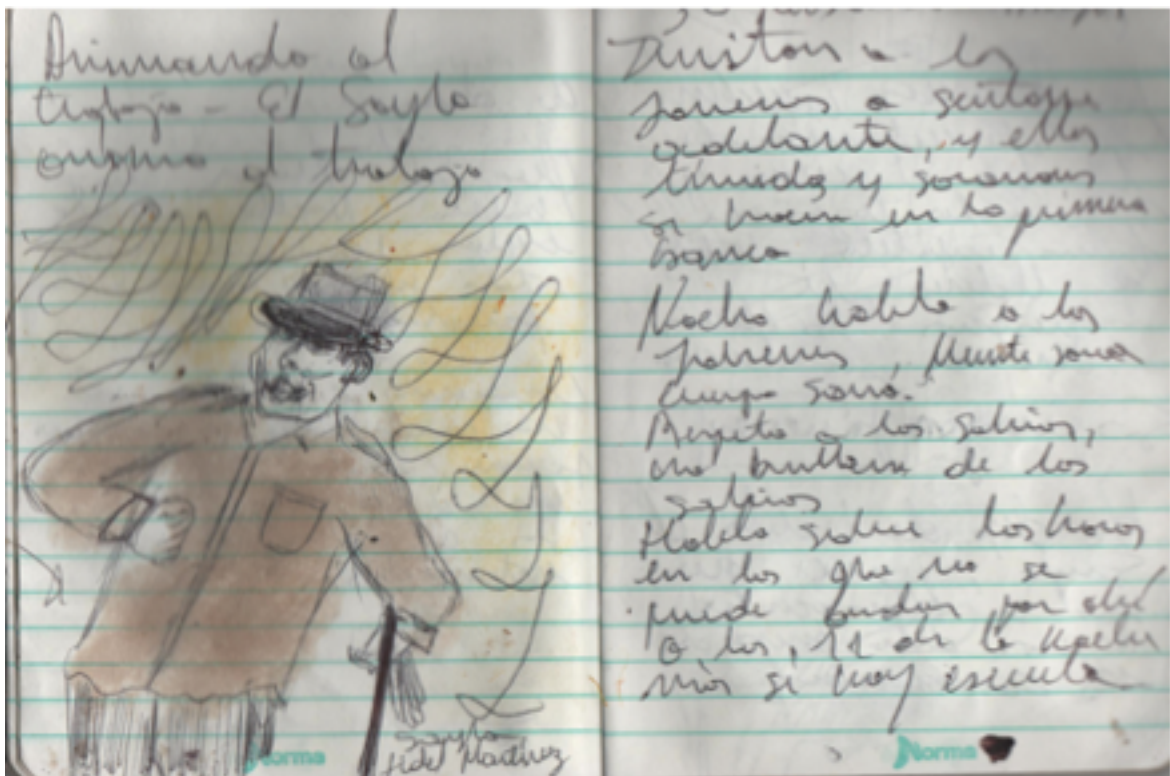 Animando al
trabajo - El Sayla
anima al trabajo
Sayla
Fidel Martinez
Norma
Invitan a los
jovenes a sentarse
adelante, y ellos
timidos y
se hacen en la primera
banca
Nacho habla a los
jovenes, Mente sana
cuerpo sano."
Respeto a los sabios,
no burlarse de los
sabios
Habla sobre las horas
en los que no se
puede andar por ahí
a las, 11 de la noche
más si hay escuela
Norma